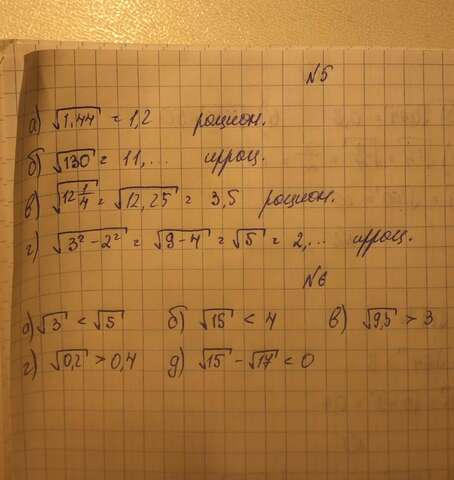 №5
а) √1,44 = 1,2 рацион.
б) √130 = 11,... иррац.
в) √12 1/4 = √12,25 = 3,5 рацион.
г) √3² - 2² = √9 - 4 = √5 = 2,... иррац.
№6
а) √3 < √5 б) √15 < 4 в) √9,5 > 3
г) √0,2 > 0,4 д) √15 - √17 < 0